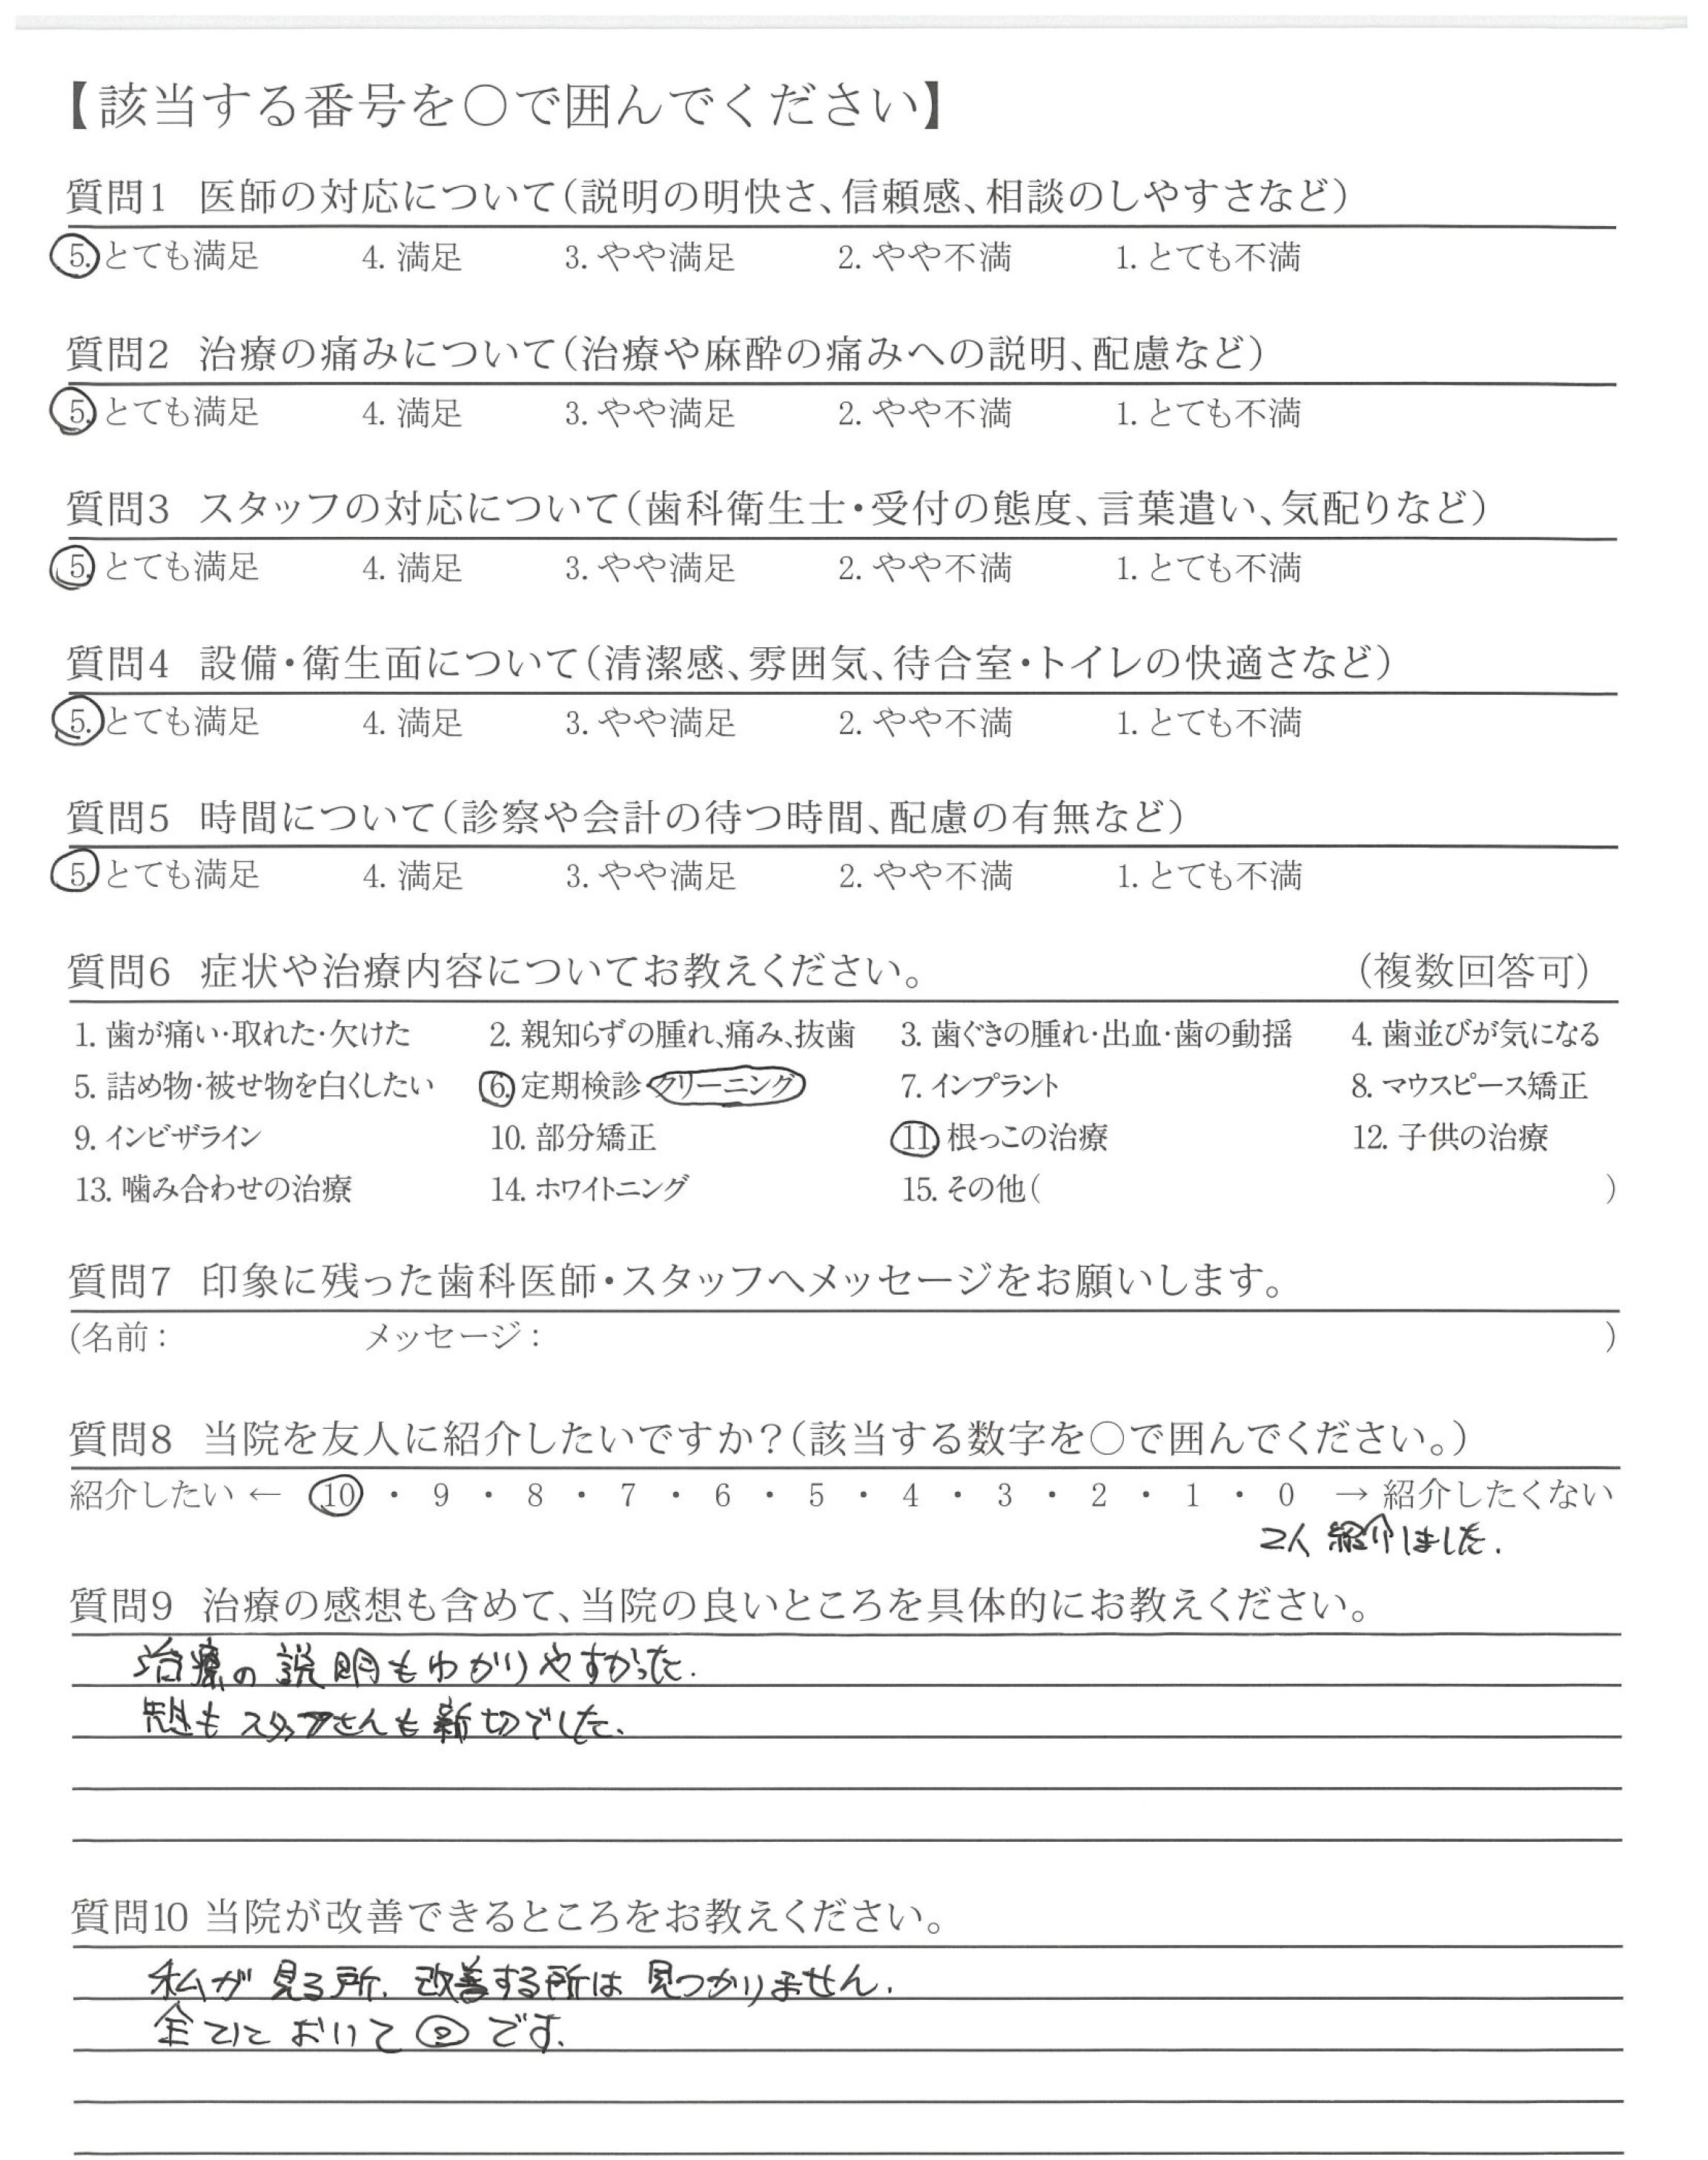 【該当する番号を○で囲んでください】
質問1 医師の対応について(説明の明快さ、信頼感、相談のしやすさなど)
5. とても満足 4. 満足 3. やや満足 2. やや不満 1. とても不満
質問2 治療の痛みについて(治療や麻酔の痛みへの説明、配慮など)
5. とても満足 4. 満足 3. やや満足 2. やや不満 1. とても不満
質問3 スタッフの対応について(歯科衛生士・受付の態度、言葉遣い、気配りなど)
5. とても満足 4. 満足 3. やや満足 2. やや不満 1. とても不満
質問4 設備・衛生面について(清潔感、雰囲気、待合室・トイレの快適さなど)
5. とても満足 4. 満足 3. やや満足 2. やや不満 1. とても不満
質問5 時間について(診察や会計の待つ時間、配慮の有無など)
5. とても満足 4. 満足 3. やや満足 2. やや不満 1. とても不満
質問6 症状や治療内容についてお教えください。 (複数回答可)
1. 歯が痛い・取れた・欠けた 2. 親知らずの腫れ、痛み、抜歯 3. 歯ぐきの腫れ・出血・歯の動揺 4. 歯並びが気になる
5. 詰め物・被せ物を白くしたい 6. 定期検診・クリーニング 7. インプラント 8. マウスピース矯正
9. インビザライン 10. 部分矯正 11. 根っこの治療 12. 子供の治療
13. 噛み合わせの治療 14. ホワイトニング 15. その他( )
質問7 印象に残った歯科医師・スタッフへメッセージをお願いします。
(名前: メッセージ: )
質問8 当院を友人に紹介したいですか?(該当する数字を○で囲んでください。)
紹介したい ← 10 ・ 9 ・ 8 ・ 7 ・ 6 ・ 5 ・ 4 ・ 3 ・ 2 ・ 1 ・ 0 → 紹介したくない
2人 紹介しました.
質問9 治療の感想も含めて、当院の良いところを具体的にお教えください。
治療の説明もわかりやすかった.
先生も スタッフさんも 親切でした.
質問10 当院が改善できるところをお教えください。
私が 見る所、改善する所は 見つかりません.
全てにおいて ◎ です.